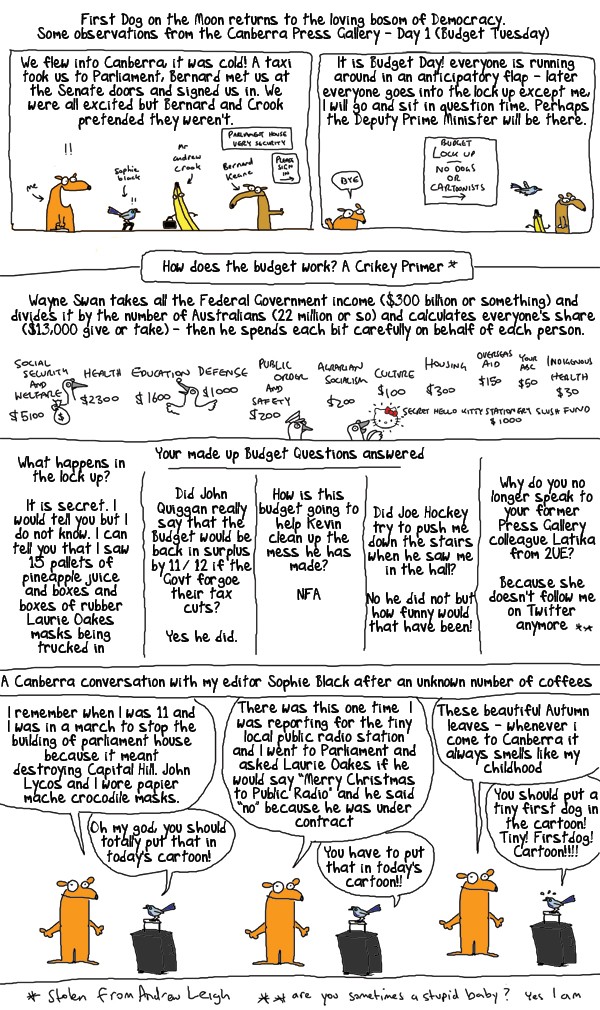 First Dog on the Moon returns to the loving bosom of Democracy.
Some observations from the Canberra Press Gallery - Day 1 (Budget Tuesday)
We flew into Canberra, it was cold! A taxi
took us to Parliament, Bernard met us at
the Senate doors and signed us in. We
were all excited but Bernard and Crook
pretended they weren't.
!!
me
Sophie
black
!!
Mr
andrew
crook
Bernard
Keane
PARLIAMENT HOUSE
VERY SECURITY
PLEASE
SIGN
IN
It is Budget Day! everyone is running
around in an anticipatory flap - later
everyone goes into the lock up except me,
I will go and sit in question time. Perhaps
the Deputy Prime Minister will be there.
BYE
BUDGET
LOCK UP
NO DOGS
OR
CARTOONISTS
How does the budget work? A Crikey Primer *
Wayne Swan takes all the Federal Government income ($300 billion or something) and
divides it by the number of Australians (22 million or so) and calculates everyone's share
($13,000 give or take) - then he spends each bit carefully on behalf of each person.
SOCIAL
SECURITY
AND
WELFARE
$5100
$
HEALTH
$2300
EDUCATION
$1600
DEFENSE
$1000
PUBLIC
ORDER
AND
SAFETY
$200
AGRARIAN
SOCIALISM
$200
CULTURE
$100
HOUSING
$300
OVERSEAS
AID
$150
YOUR
ABC
$50
INDIGENOUS
HEALTH
$30
SECRET HELLO KITTY STATIONERY SLUSH FUND
$1000
Your made up Budget Questions answered
What happens in
the lock up?
It is secret. I
would tell you but I
do not know. I can
tell you that I saw
15 pallets of
pineapple juice
and boxes and
boxes of rubber
Laurie Oakes
masks being
trucked in
Did John
Quiggan really
say that the
Budget would be
back in surplus
by 11/12 if the
Govt forgoe
their tax
cuts?
Yes he did.
How is this
budget going to
help Kevin
clean up the
mess he has
made?
NFA
Did Joe Hockey
try to push me
down the stairs
when he saw me
in the hall?
No he did not but
how funny would
that have been!
Why do you no
longer speak to
your former
Press Gallery
colleague Latika
from 2UE?
Because she
doesn't follow me
on Twitter
anymore **
A Canberra conversation with my editor Sophie Black after an unknown number of coffees
I remember when I was 11 and
I was in a march to stop the
building of parliament house
because it meant
destroying Capital Hill. John
Lycos and I wore papier
mache crocodile masks.
Oh my god, you should
totally put that in
today's cartoon!
There was this one time I
was reporting for the tiny
local public radio station
and I went to Parliament and
asked Laurie Oakes if he
would say "Merry Christmas
to Public Radio" and he said
"no" because he was under
contract
You have to put
that in today's
cartoon!!
These beautiful Autumn
leaves - whenever i
come to Canberra it
always smells like my
childhood
You should put a
tiny first dog in
the cartoon!
Tiny! Firstdog!
Cartoon!!!!
* Stolen from Andrew Leigh
** are you sometimes a stupid baby? Yes I am